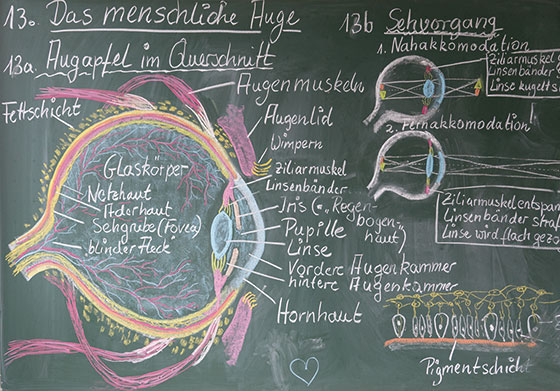 13. Das menschliche Auge
13a. Augapfel im Querschnitt
Fettschicht
Augenmuskeln
Augenlid
Wimpern
Glaskörper
Netzhaut
Aderhaut
Sehgrube (Fovea)
"blinder Fleck"
Ziliarmuskel
Linsenbänder
Iris (="Regen-
bogen-
haut")
Pupille
Linse
Vordere Augenkammer
hintere Augenkammer
Hornhaut
13b Sehvorgang
1. Nahakkomodation
Ziliarmuskel
Linsenbänder
Linse kugelt
2. Fernakkomodation
Ziliarmuskel entspan
Linsenbänder straf
Linse wird flach gezo
Pigmentschicht